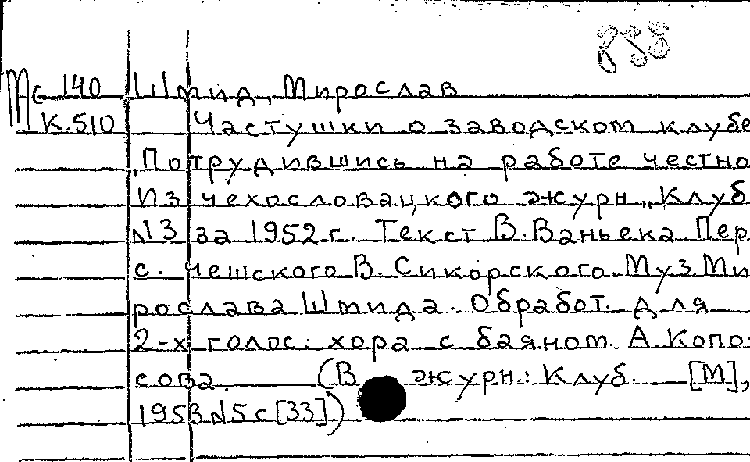 838
Мс 140 Шмид, Мирослав
К.510 Частушки о заводском клубе
„Потрудившись на работе честно
Из чехословацкого журн „Клуб
N3 за 1952 г. Текст В. Ваньека Пер
с. чешского В. Сикорского. Муз Ми
рослава Шмида. Обработ. для
2-х голос. хора с баяном А. Копо-
сова. (В журн: Клуб [М],
1953 N5 с [33])